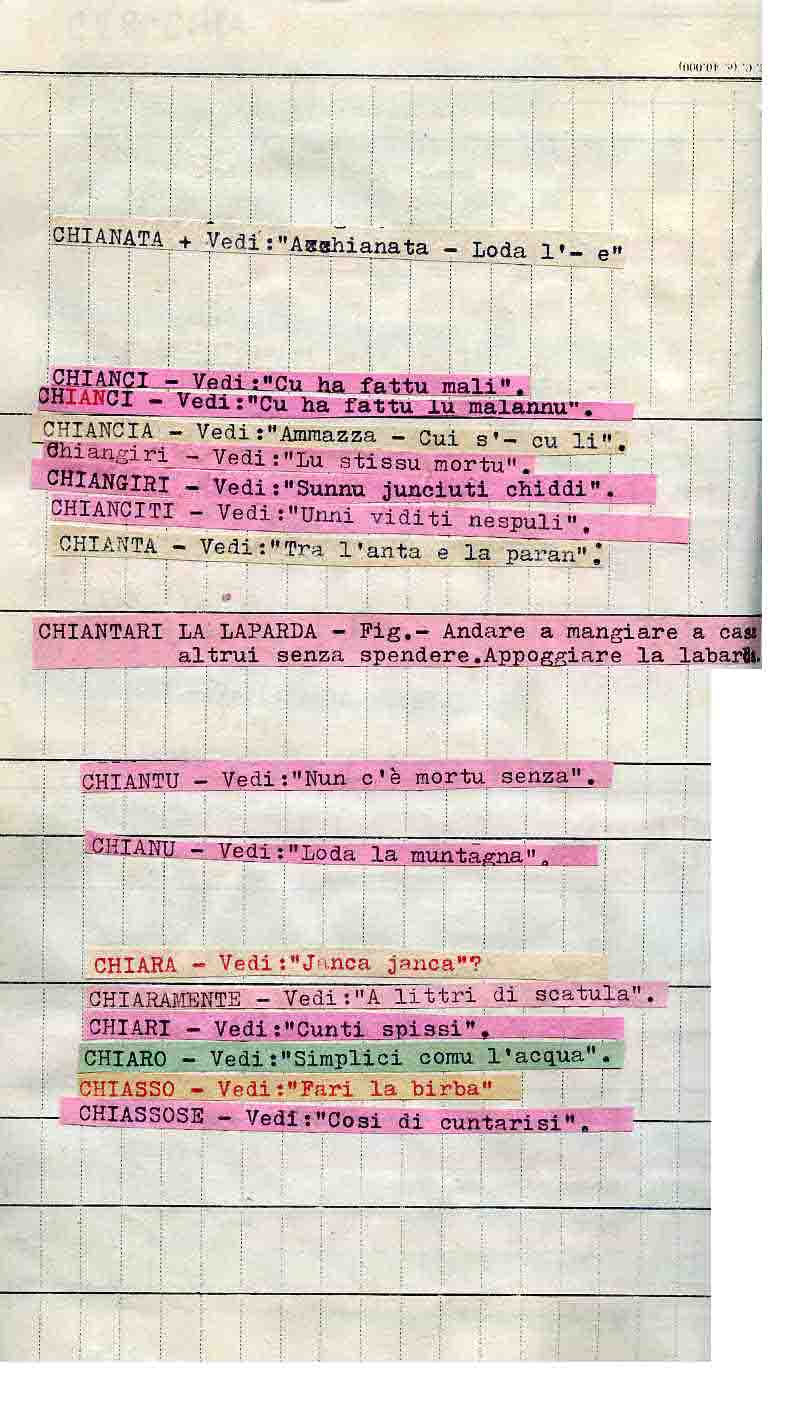 CHIANATA + Vedi:"Acchianata - Loda l'- e"
CHIANCI - Vedi:"Cu ha fattu mali".
CHIANCI - Vedi:"Cu ha fattu lu malannu".
CHIANCIA - Vedi:"Ammazza - Cui s'- cu li".
Chiangiri - Vedi:"Lu stissu mortu".
CHIANGIRI - Vedi:"Sunnu junciuti chiddi".
CHIANCITI - Vedi:"Unni viditi nespuli".
CHIANTA - Vedi:"Tra l'anta e la paran".
CHIANTARI LA LAPARDA - Fig.- Andare a mangiare a casa
altrui senza spendere.Appoggiare la labarda.
CHIANTU - Vedi:"Nun c'è mortu senza".
CHIANU - Vedi:"Loda la muntagna".
CHIARA - Vedi:"Janca janca"?
CHIARAMENTE - Vedi:"A littri di scatula".
CHIARI - Vedi:"Cunti spissi".
CHIARO - Vedi:"Simplici comu l'acqua".
CHIASSO - Vedi:"Fari la birba"
CHIASSOSE - Vedi:"Cosi di cuntarisi".